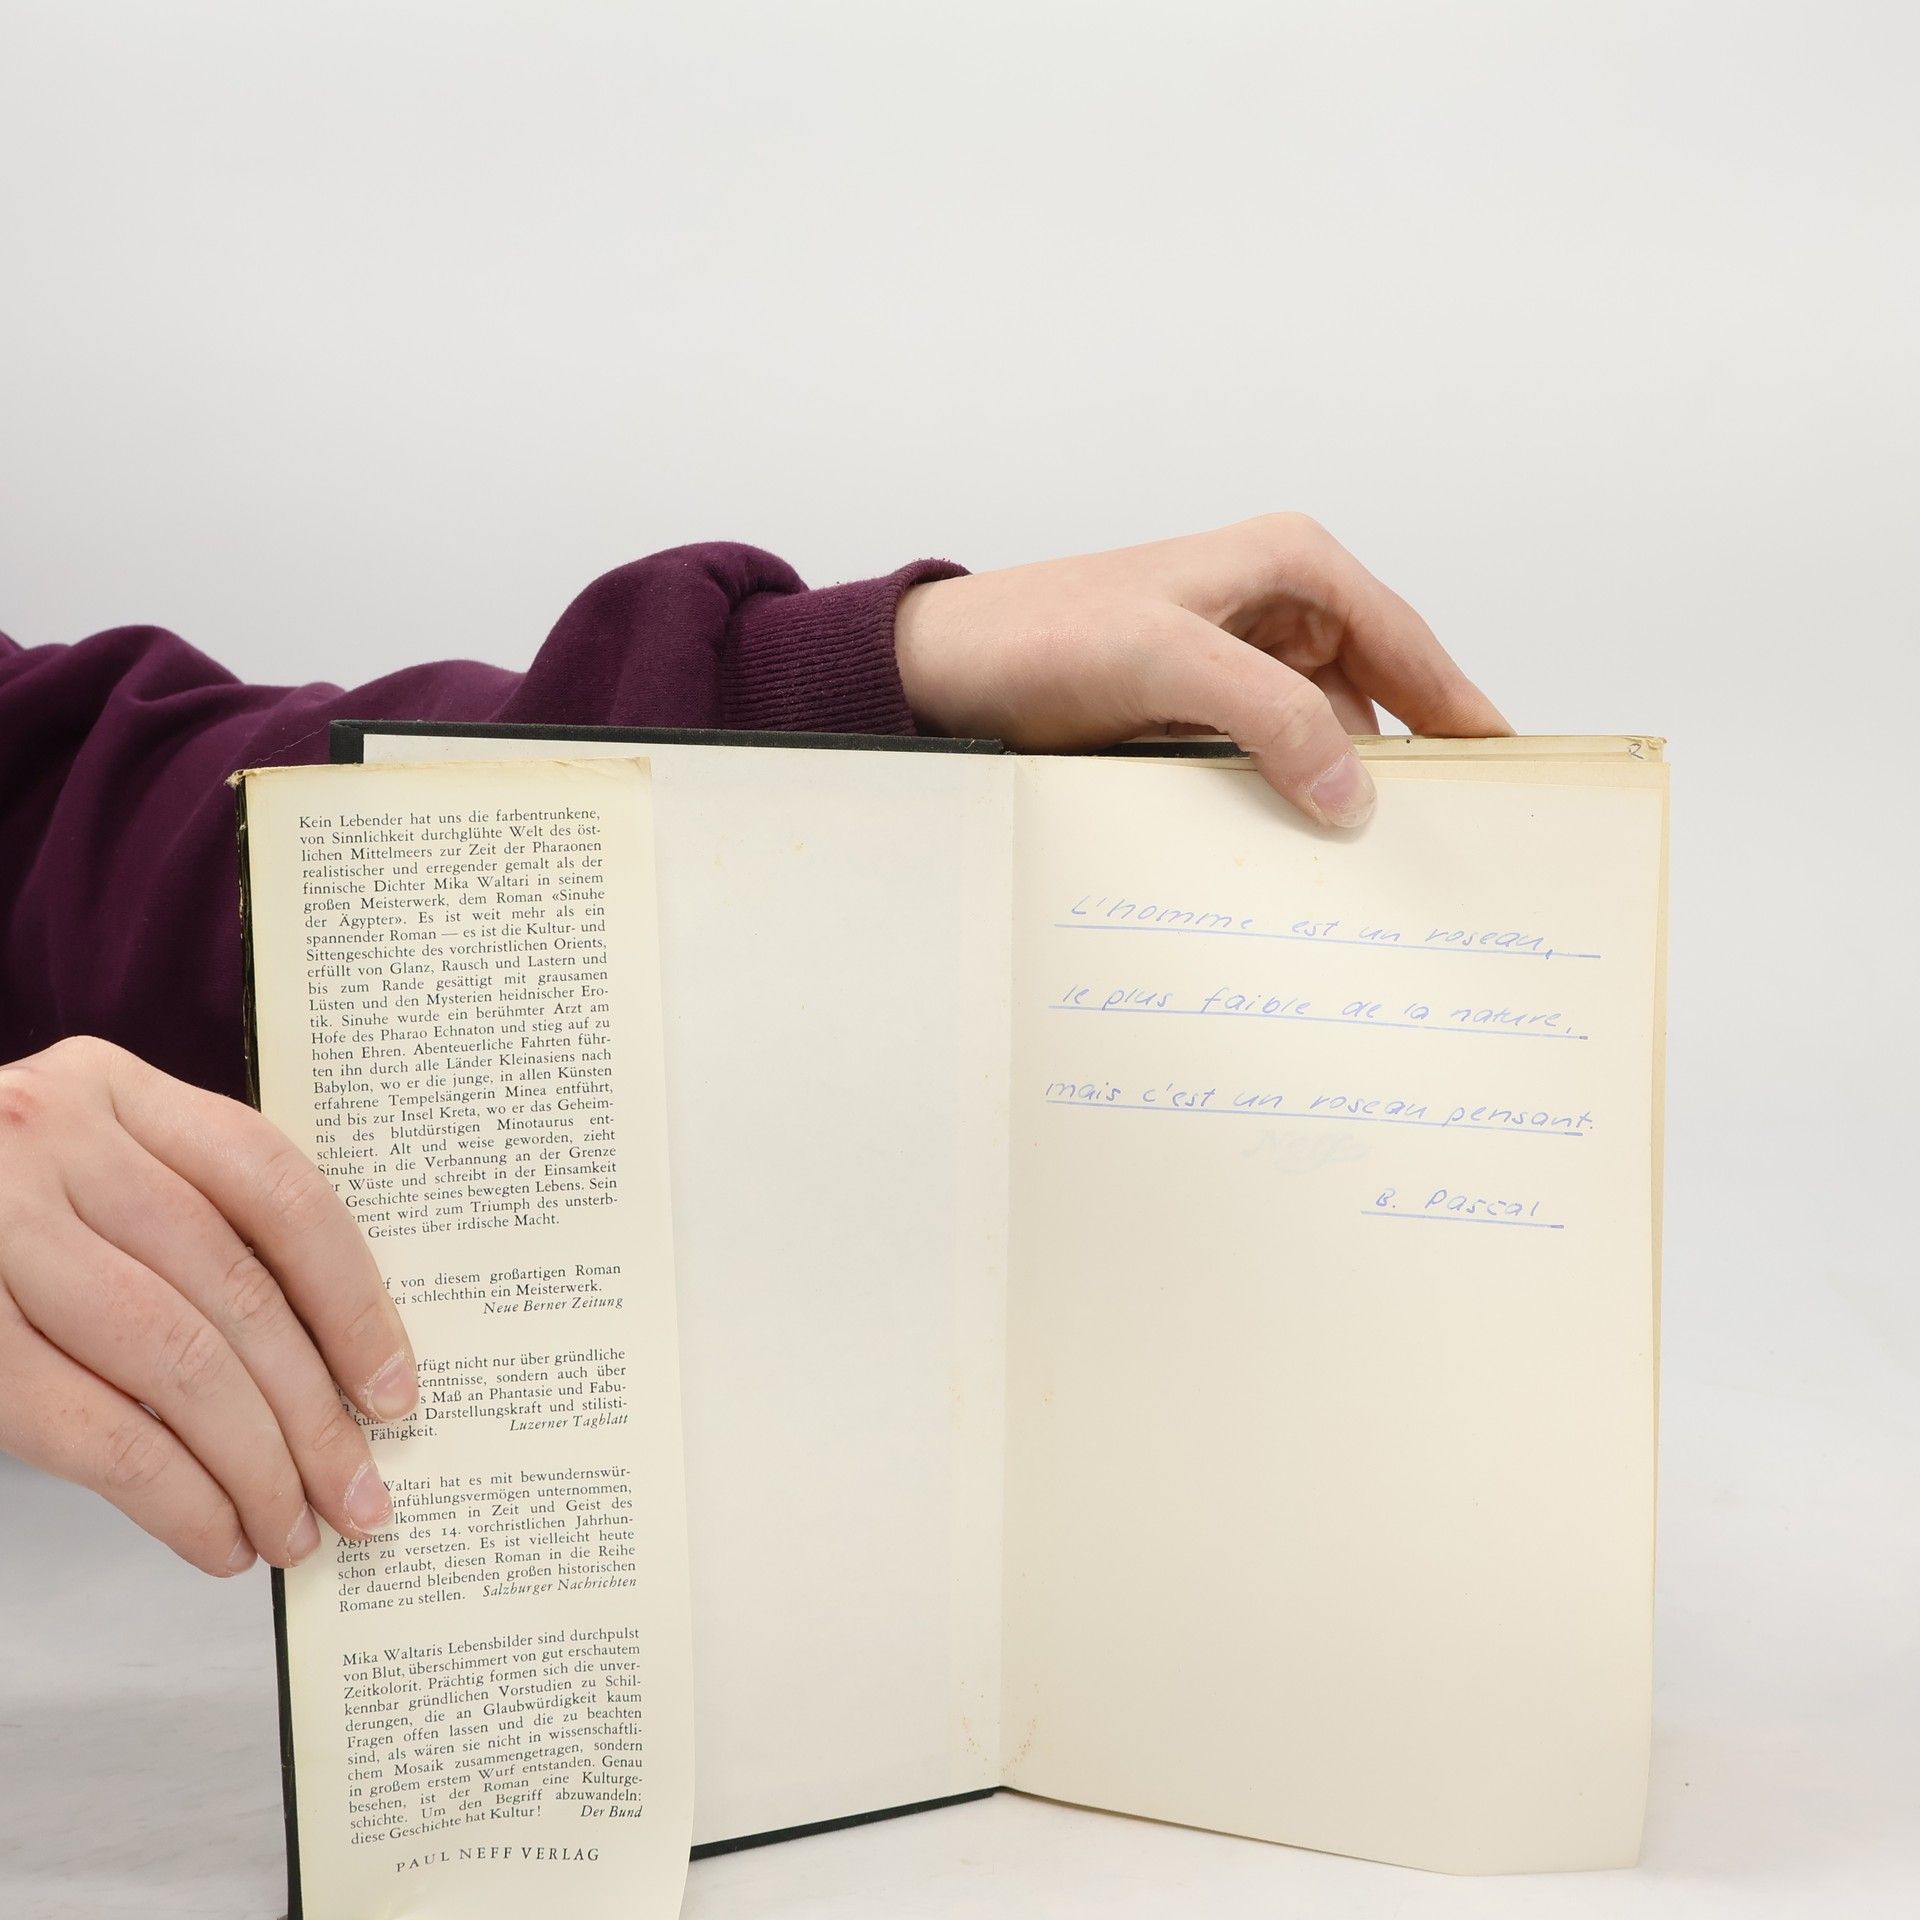 Kein Lebender hat uns die farbentrunkene,
von Sinnlichkeit durchglühte Welt des öst-
lichen Mittelmeers zur Zeit der Pharaonen
realistischer und erregender gemalt als der
finnische Dichter Mika Waltari in seinem
großen Meisterwerk, dem Roman «Sinuhe
der Ägypter». Es ist weit mehr als ein
spannender Roman — es ist die Kultur- und
Sittengeschichte des vorchristlichen Orients,
erfüllt von Glanz, Rausch und Lastern und
bis zum Rande gesättigt mit grausamen
Lüsten und den Mysterien heidnischer Ero-
tik. Sinuhe wurde ein berühmter Arzt am
Hofe des Pharao Echnaton und stieg auf zu
hohen Ehren. Abenteuerliche Fahrten führ-
ten ihn durch alle Länder Kleinasiens nach
Babylon, wo er die junge, in allen Künsten
erfahrene Tempelsängerin Minea entführt,
und bis zur Insel Kreta, wo er das Geheim-
nis des blutdürstigen Minotaurus ent-
schleiert. Alt und weise geworden, zieht
Sinuhe in die Verbannung an der Grenze
Wüste und schreibt in der Einsamkeit
Geschichte seines bewegten Lebens. Sein
wird zum Triumph des unsterb-
Geistes über irdische Macht.
von diesem großartigen Roman
schlechthin ein Meisterwerk.
Neue Berner Zeitung
nicht nur über gründliche
Kenntnisse, sondern auch über
Maß an Phantasie und Fabu-
an Darstellungskraft und stilisti-
Fähigkeit. Luzerner Tagblatt
Waltari hat es mit bewundernswür-
unternommen,
in Zeit und Geist des
Ägyptens des 14. vorchristlichen Jahrhun-
derts zu versetzen. Es ist vielleicht heute
schon erlaubt, diesen Roman in die Reihe
der dauernd bleibenden großen historischen
Romane zu stellen. Salzburger Nachrichten
Mika Waltaris Lebensbilder sind durchpulst
von Blut, überschimmert von gut erschautem
Zeitkolorit. Prächtig formen sich die unver-
kennbar gründlichen Vorstudien zu Schil-
derungen, die an Glaubwürdigkeit kaum
Fragen offen lassen und die zu beachten
sind, als wären sie nicht in wissenschaftli-
chem Mosaik zusammengetragen, sondern
in großem erstem Wurf entstanden. Genau
besehen, ist der Roman eine Kulturge-
schichte. Um den Begriff abzuwandeln:
diese Geschichte hat Kultur! Der Bund
PAUL NEFF VERLAG
L'homme est un roseau,
le plus faible de la nature,
mais c'est un roseau pensant.
B. Pascal